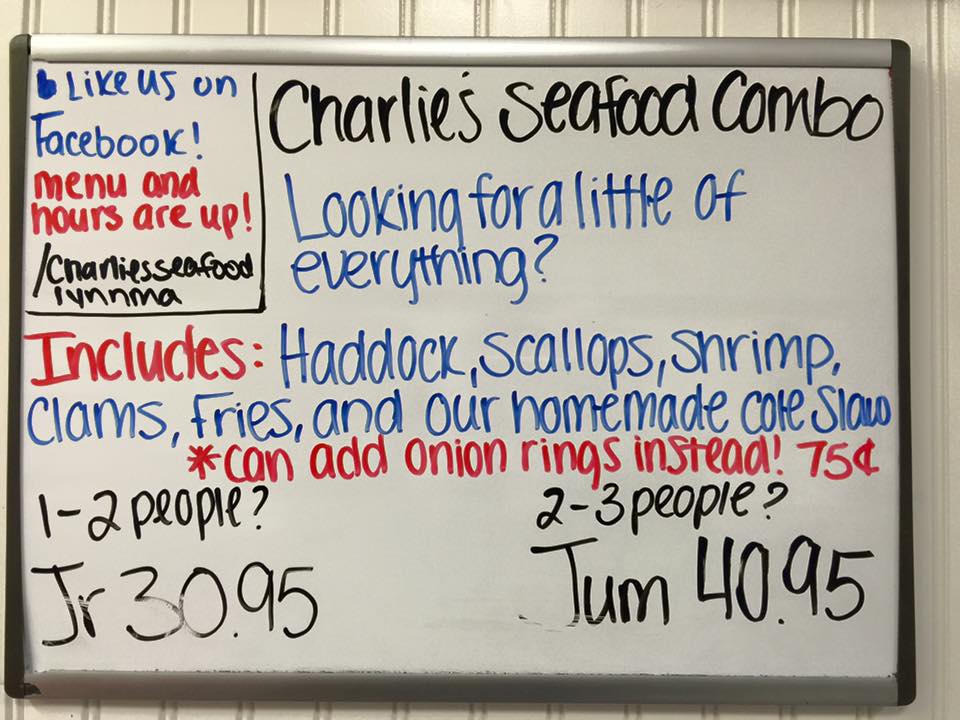 Like us on
Facebook!
menu and
hours are up!
/charliesseafood
lynnma
Charlie's Seafood Combo
Looking for a little of
everything?
Includes: Haddock, Scallops, Shrimp,
Clams, Fries, and our homemade cole slaw
*can add onion rings instead! 75¢
1-2 people?
Jr 30.95
2-3 people?
Jum 40.95